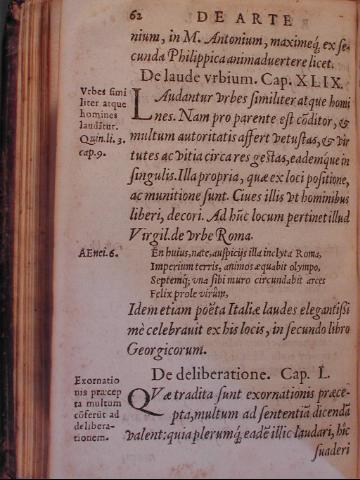 62 DE ARTE
nium, in M. Antonium, maximeq́; ex se-
cunda Philippica animaduertere licet.
De laude vrbium. Cap. XLIX.
Vrbes simi
liter atque
homines
laudãtur.
Quin.li. 3.
cap.9.
LAudantur vrbes similiter atque homi
nes. Nam pro parente est cõditor, &
multum autoritatis affert vetustas, & vir
tutes ac vitia circa res gestas, eadem que in
singulis. Illa propria, quæ ex loci positione,
ac munitione sunt. Ciues illis vt hominibus
liberi, decori. Ad hũc locum pertinet illud
Virgil. de vrbe Roma.
AEnei. 6.
En huius, nate, auspicijs illa inclyta Roma,
Imperium terris, animos æquabit olympo,
Septemq́; vna sibi muro circundabit arces
Felix prole virûm,
Idem etiam poëta Italiæ laudes elegantissi
mè celebrauit ex his locis, in secundo libro
Georgicorum.
De deliberatione. Cap. L.
Exornatio
nis præcep
ta multum
cõferũt ad
delibera-
tionem.
QVæ tradita sunt exornationis præce-
pta, multum ad sententiã dicendã
valent: quia plerumq́; eadẽ illic laudari, hîc
suaderi